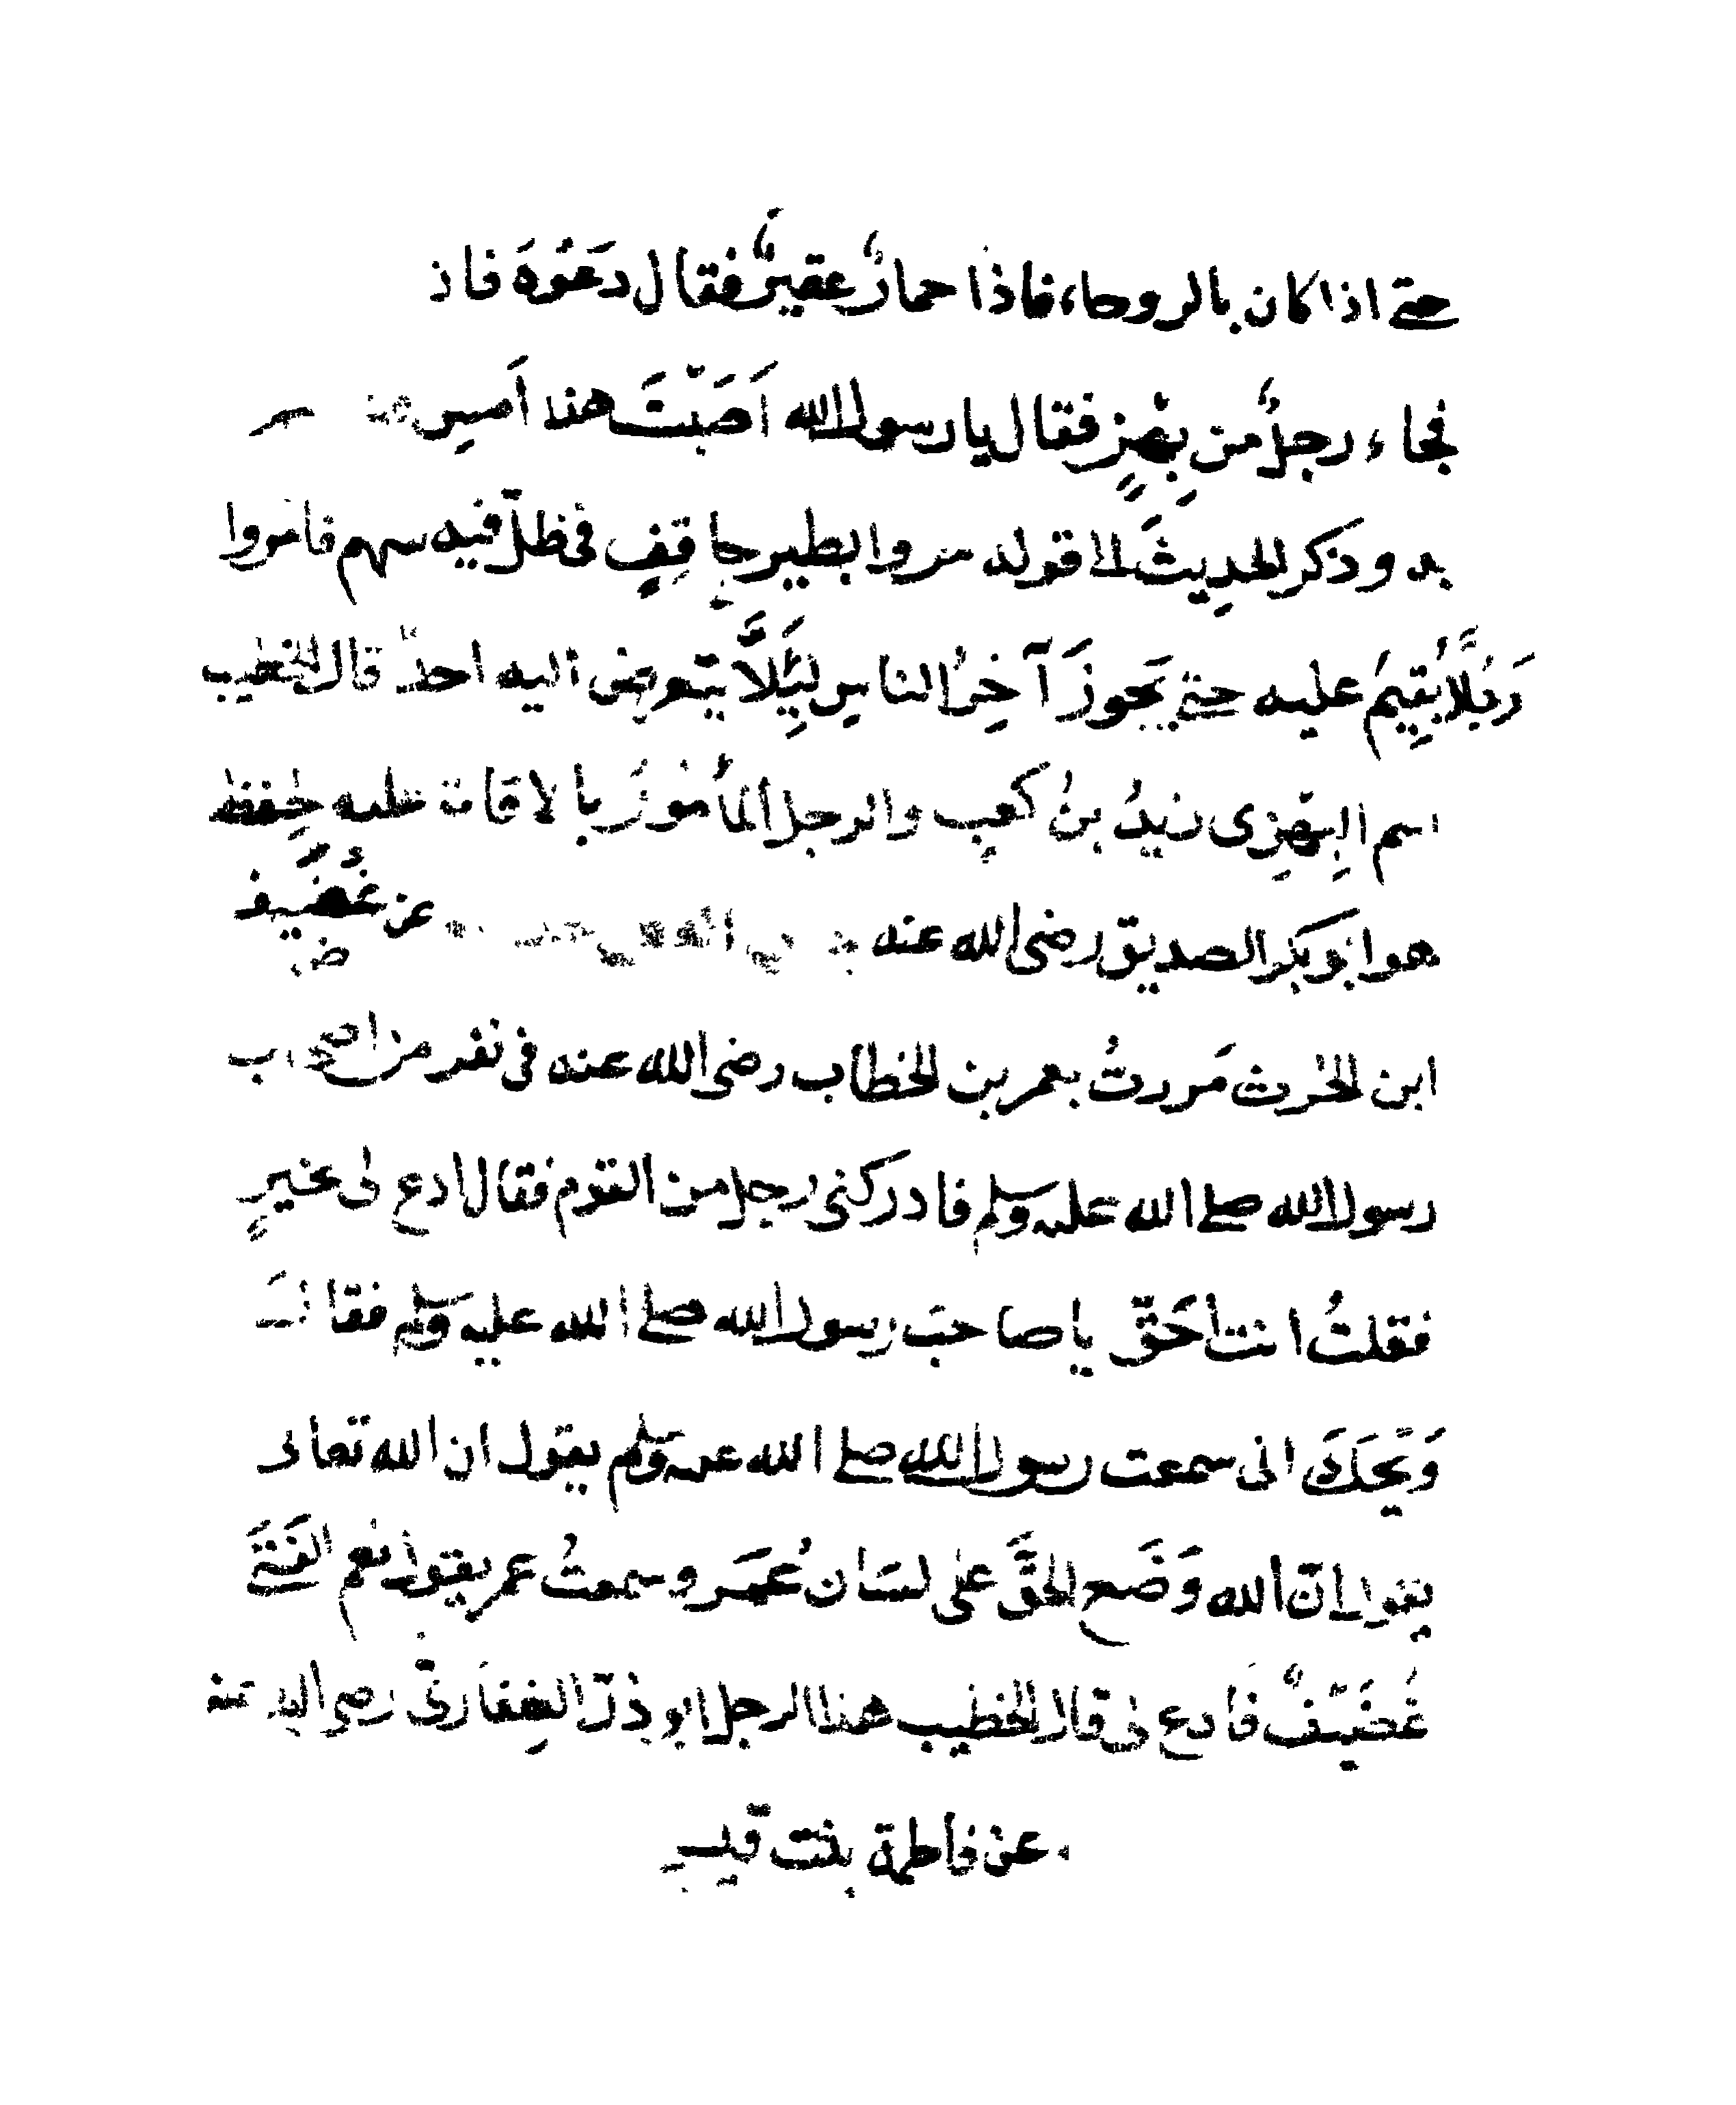 حتى اذا كان بالروحاء فاذا حمارٌ عقيرٌ فقال دَعُوْهُ فاذ
فجاء رجلٌ من بِهْزٍ فقال يا رسول الله اَصَبْتَ هذا اَمس
به وذكر الحدِيثَ الا قوله مروا بطير حِاقِفٍ فى ظلّ فيه سهم فامروا
رَجُلًا يُقِيمُ عليه حتى يَجوزَ آخِرُ الناسِ لِئَلَّا يتعرض اليه احدٌ قال الخطيب
اسم البِهْزِى زيدُ بنُ كعبٍ والرجل المأمُورُ بالاقامة عليه لِحفظه
هو ابو بكر الصديق رضى الله عنه عن غُضَيف
ض
ابن الحٰرث مَررتُ بعمر بن الخطاب رضى الله عنه فى نفر من اصحاب
رسول الله صلى الله عليه وسلم فادركنى رجل من القوم فقال ادع لى بخيرٍ
فقلتُ انت احَقّ يا صاحبَ رسول الله صلى الله عليه وسلم فقال
وَيْحَكَ انى سمعت رسول الله صلى الله عليه وسلم يقول ان الله تعالى
يقول اِنّ الله وَضَع الحقَّ على لسَان عُمَر وسمعتُ عمر يقول نعم الفَتَى
غُضَيْفٌ فادع لى قال الخطيب هذا الرجل ابو ذرّ الغِفارىّ رضى الله عنه
عن فاطمة بنت قيس